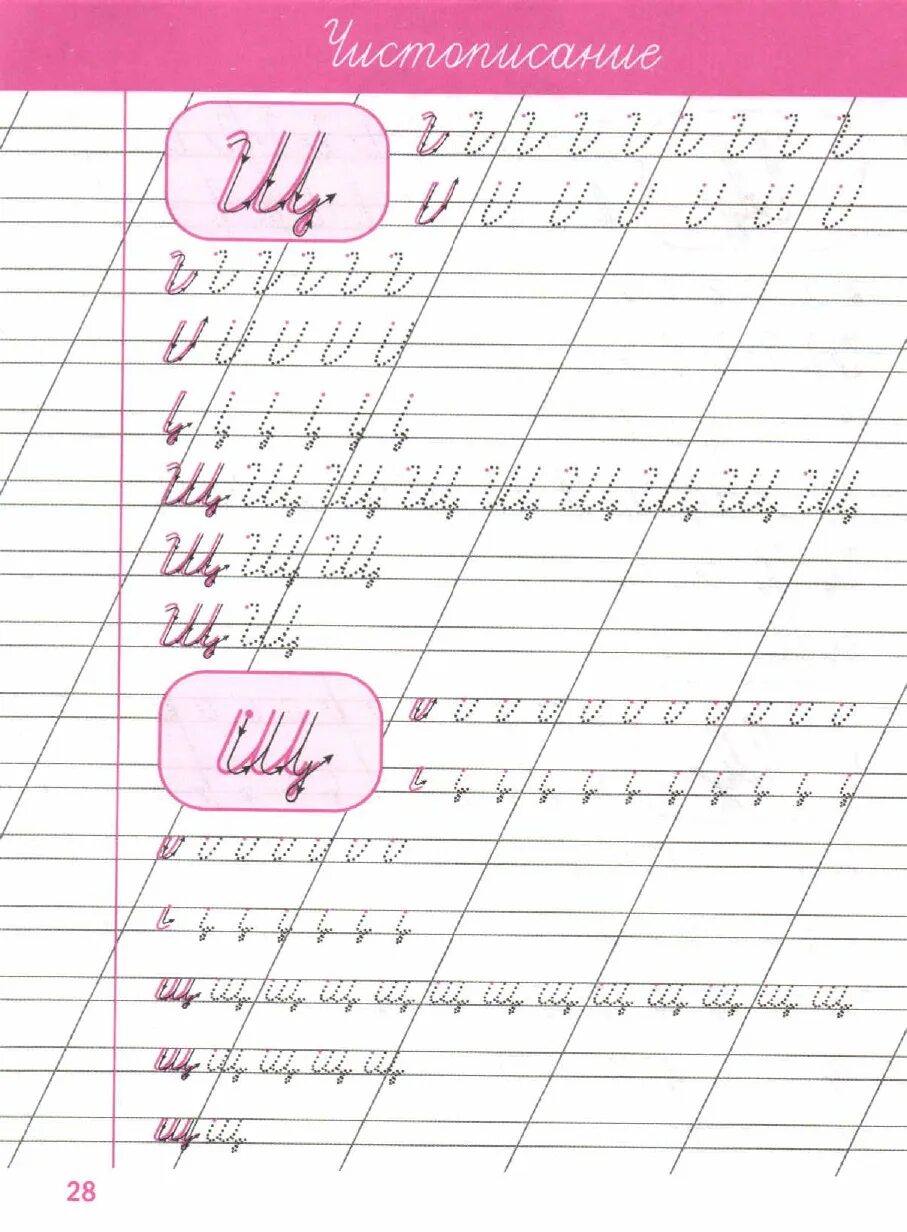 Чистописание
Щ
Щ Щ Щ Щ Щ Щ Щ Щ Щ
Щ Щ Щ
Щ Щ
щ
щ щ щ щ щ щ щ щ щ щ щ щ щ
щ щ щ щ щ
щ щ
28